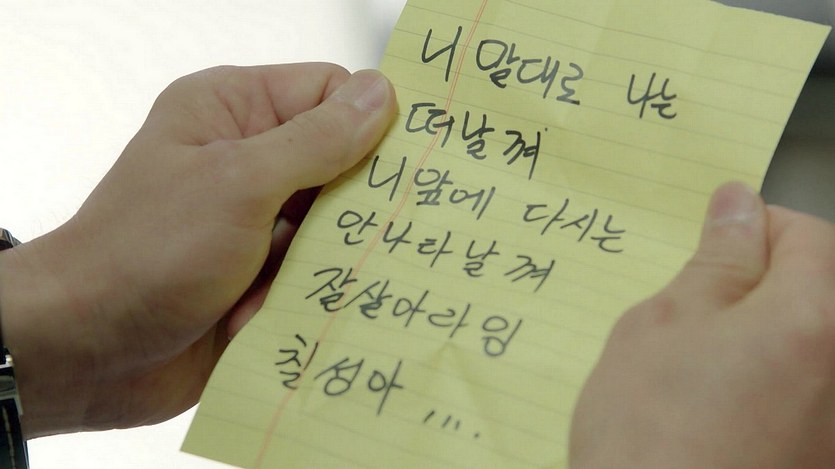 니 말대로 나는
떠날껴
니 앞에 다시는
안나타날껴
잘살아라잉
칠성아 ....